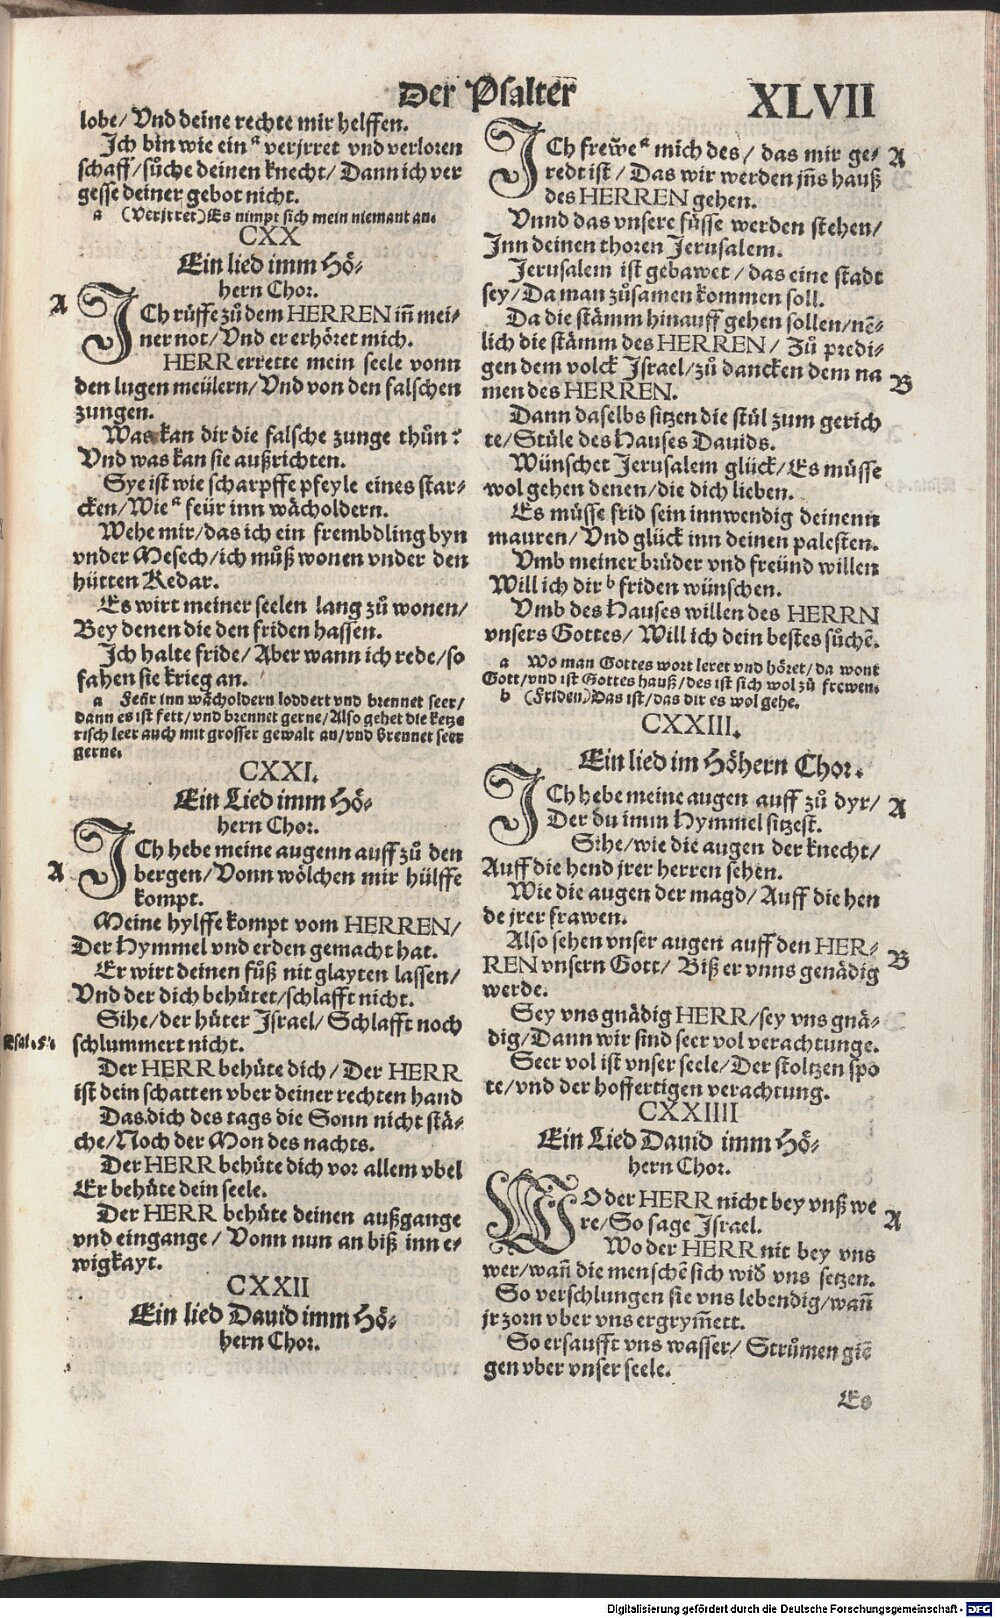 Der Psalter
XLVII
lobe/ Vnd deine rechte mir helffen.
Ich bin wie ein ª verjrret vnd verloren
schaff/ sůche deinen knecht/ Dann ich ver
gesse deiner gebot nicht.
a (Verjrret) Es nimpt sich mein niemant an.
CXX
Ein lied imm Hö-
hern Chor.
A
ICh rüffe zů dem HERREN in̄ mei-
ner not/ Vnd er erhöret mich.
HERR errette mein seele vonn
den lugen meülern/ Vnd von den falschen
zungen.
Was kan dir die falsche zunge thůn?
Vnd was kan sie außrichten.
Sye ist wie scharpffe pfeyle eines star-
cken/ Wie ª feür inn wächoldern.
Wehe mir/ das ich ein frembdling byn
vnder Mesech/ ich můß wonen vnder den
hütten Kedar.
Es wirt meiner seelen lang zů wonen/
Bey denen die den friden hassen.
Ich halte fride/ Aber wann ich rede/ so
fahen sie krieg an.
a Feür inn wächoldern loddert vnd brennet seer/
dann es ist fett/ vnd brennet gerne/ Also gehet die ketze
risch leer auch mit grosser gewalt an/ vnd brennet seer
gerne.
CXXI.
Ein Lied imm Hö-
hern Chor.
A
ICh hebe meine augenn auff zů den
bergen/ Vonn wölchen mir hülffe
kompt.
Meine hylffe kompt vom HERREN/
Der Hymmel vnd erden gemacht hat.
Er wirt deinen fůß nit glayten lassen/
Vnd der dich behütet/ schlafft nicht.
Sihe/ der hüter Israel/ Schlafft noch
schlummert nicht.
Der HERR behüte dich/ Der HERR
ist dein schatten vber deiner rechten hand
Das dich des tags die Sonn nicht stä-
che/ Noch der Mon des nachts.
Der HERR behüte dich vor allem vbel
Er behüte dein seele.
Der HERR behüte deinen außgange
vnd eingange/ Vonn nun an biß inn e-
wigkayt.
CXXII
Ein lied Dauid imm Hö-
hern Chor.
ICh frew̄e ª mich des/ das mir ge-
redt ist/ Das wir werden jn̄s hauß
des HERREN gehen.
A
Vnnd das vnsere füsse werden stehen/
Inn deinen thoren Jerusalem.
Jerusalem ist gebawet/ das eine stadt
sey/ Da man zůsamen kommen soll.
Da die stämm hinauff gehen sollen/ nē-
lich die stämm des HERREN/ Zů predi-
gen dem volck Israel/ zů dancken dem na
men des HERREN.
B
Dann daselbs sitzen die stül zum gerich
te/ Stüle des Hauses Dauids.
Wünschet Jerusalem glück/ Es müsse
wol gehen denen/ die dich lieben.
Es müsse frid sein innwendig deinenn
mauren/ Vnd glück inn deinen palesten.
Vmb meiner brüder vnd freünd willen
Will ich dir ᵇ friden wünschen.
Vmb des Hauses willen des HERRN
vnsers Gottes/ Will ich dein bestes sůchē.
a Wo man Gottes wort leret vnd höret/ da wont
Gott/ vnd ist Gottes hauß/ des ist sich wol zů frewen.
b (Friden) Das ist/ das dir es wol gehe.
CXXIII.
Ein lied im Höhern Chor.
ICh hebe meine augen auff zů dyr/
Der du imm Hymmel sitzest.
A
Sihe/ wie die augen der knecht/
Auff die hend jrer herren sehen.
Wie die augen der magd/ Auff die hen
de jrer frawen.
Also sehen vnser augen auff den HER-
REN vnsern Gott/ Biß er vnns genädig
werde.
B
Sey vns gnädig HERR/ sey vns gnä-
dig/ Dann wir sind seer vol verachtunge.
Seer vol ist vnser seele/ Der stoltzen spo
te/ vnd der hoffertigen verachtung.
CXXIIII
Ein Lied Dauid imm Hö-
hern Chor.
WO der HERR nicht bey vnß we
re/ So sage Israel.
A
Wo der HERR nit bey vns
wer/ wan̄ die menschē sich wid̕ vns setzen.
So verschlungen sie vns lebendig/ wan̄
jr zorn vber vns ergrym̄ett.
So ersaufft vns wasser/ Strůmen giē
gen vber vnser seele.
Es
Digitalisierung gefördert durch die Deutsche Forschungsgemeinschaft - DFG